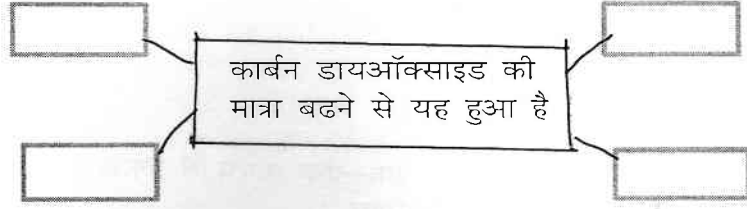 कार्बन डायऑक्साइड की
मात्रा बढने से यह हुआ है